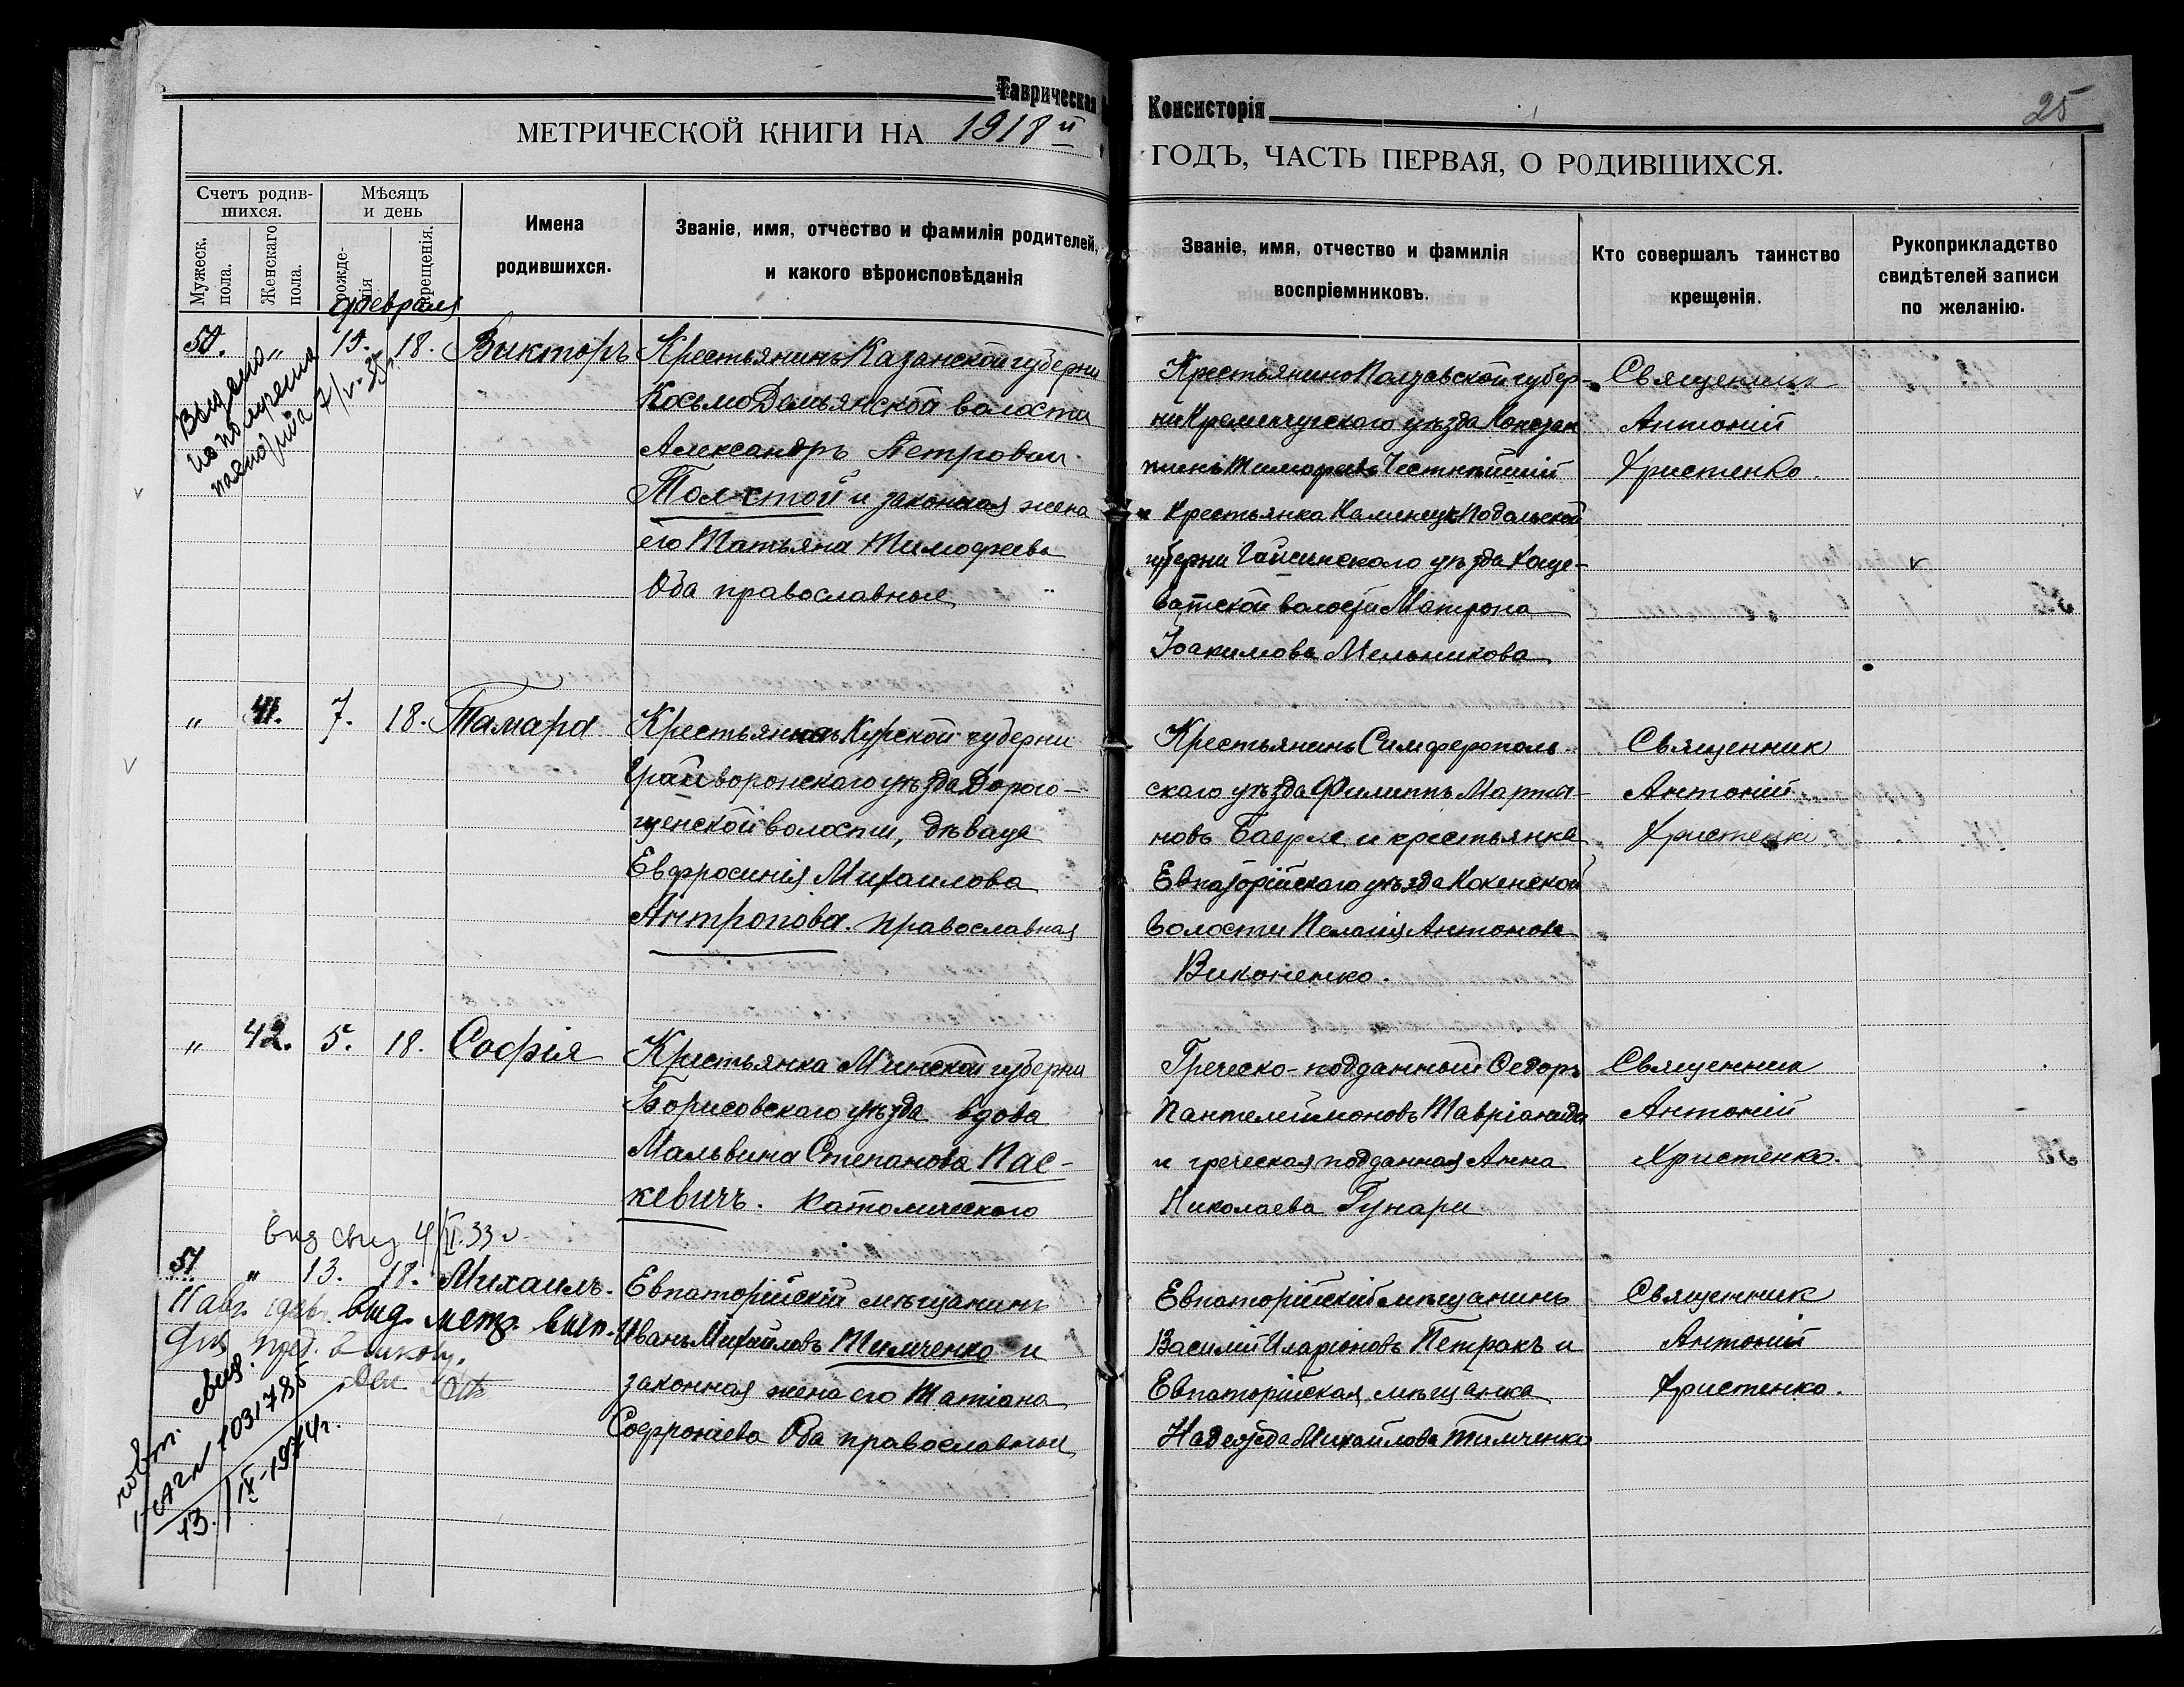 Таврическая
Консисторія
25
МЕТРИЧЕСКОЙ КНИГИ НА 1918 й
ГОДЪ, ЧАСТЬ ПЕРВАЯ, О РОДИВШИХСЯ.
Счетъ родив-
шихся.
Мужеск.
пола.
Женскаго
пола.
Мѣсяцъ
и день
рожде-
нія
крещенія.
февраля
Имена
родившихся.
Званіе, имя, отчество и фамилія родителей,
и какого вѣроисповѣданія
Званіе, имя, отчество и фамилія
воспріемниковъ.
Кто совершалъ таинство
крещенія.
Рукоприкладство
свидѣтелей записи
по желанію.
"
18.
Викторъ
Крестьянинъ Казанской губерни
КосьмоДемьянской волости
Александръ Петровъ
Толстой и законная жена
его Татьяна Тимофеева
Оба православные
Крестьянинъ Полтавской губер-
ни Кременчугского уѣзда Констан
тинъ Тимофеевъ Честнѣйшій
и Крестьянка Каменецъ Подольской
губерни Гайсинского уѣзда Хаще-
ватской волости Матрона
Іоакимова Мельникова
Священникъ
Антоній
Христенко.
Выдано
"
41.
7.
18.
Тамара
Крестьянка Курской губерни
Грайворонскаго уѣзда Дорого-
щенской волости, дѣвица
Евфросинія Михаилова
Антропова. православная
Крестьянинъ Симферополь-
скаго уѣзда Филиппъ Марты-
новъ Баерле и крестьянка
Евпаторійскаго уѣзда Кокенской
волости Пелагія Антонова
Виконенко.
Священник
Антоній
Христенко
"
42.
5.
18.
Софія
Крестьянка Минской губерни
Борисовскаго уѣзда вдова
Мальвина Степанова Пас-
кевичъ. Католического
Греческо-подданный Федоръ
Пантелеимоновъ Мавріаниди
и греческая подданная Анна
Николаева Гунари
Священник
Антоній
Христенко.
51
"
13.
18.
Михаилъ.
Евпаторійскій мѣщанинъ
Иванъ Михайловъ Тимченко и
законная жена его Татіана
Софроніева Оба православные
Евпаторійскій мѣщанинъ
Василій Иларіоновъ Петракъ и
Евпаторійская мѣщанка
Надежда Михайлова Тимченко
Священник
Антоній
Христенко.
выд. метр. вып.
повт. свид.
1031785
13/IX-1974г.